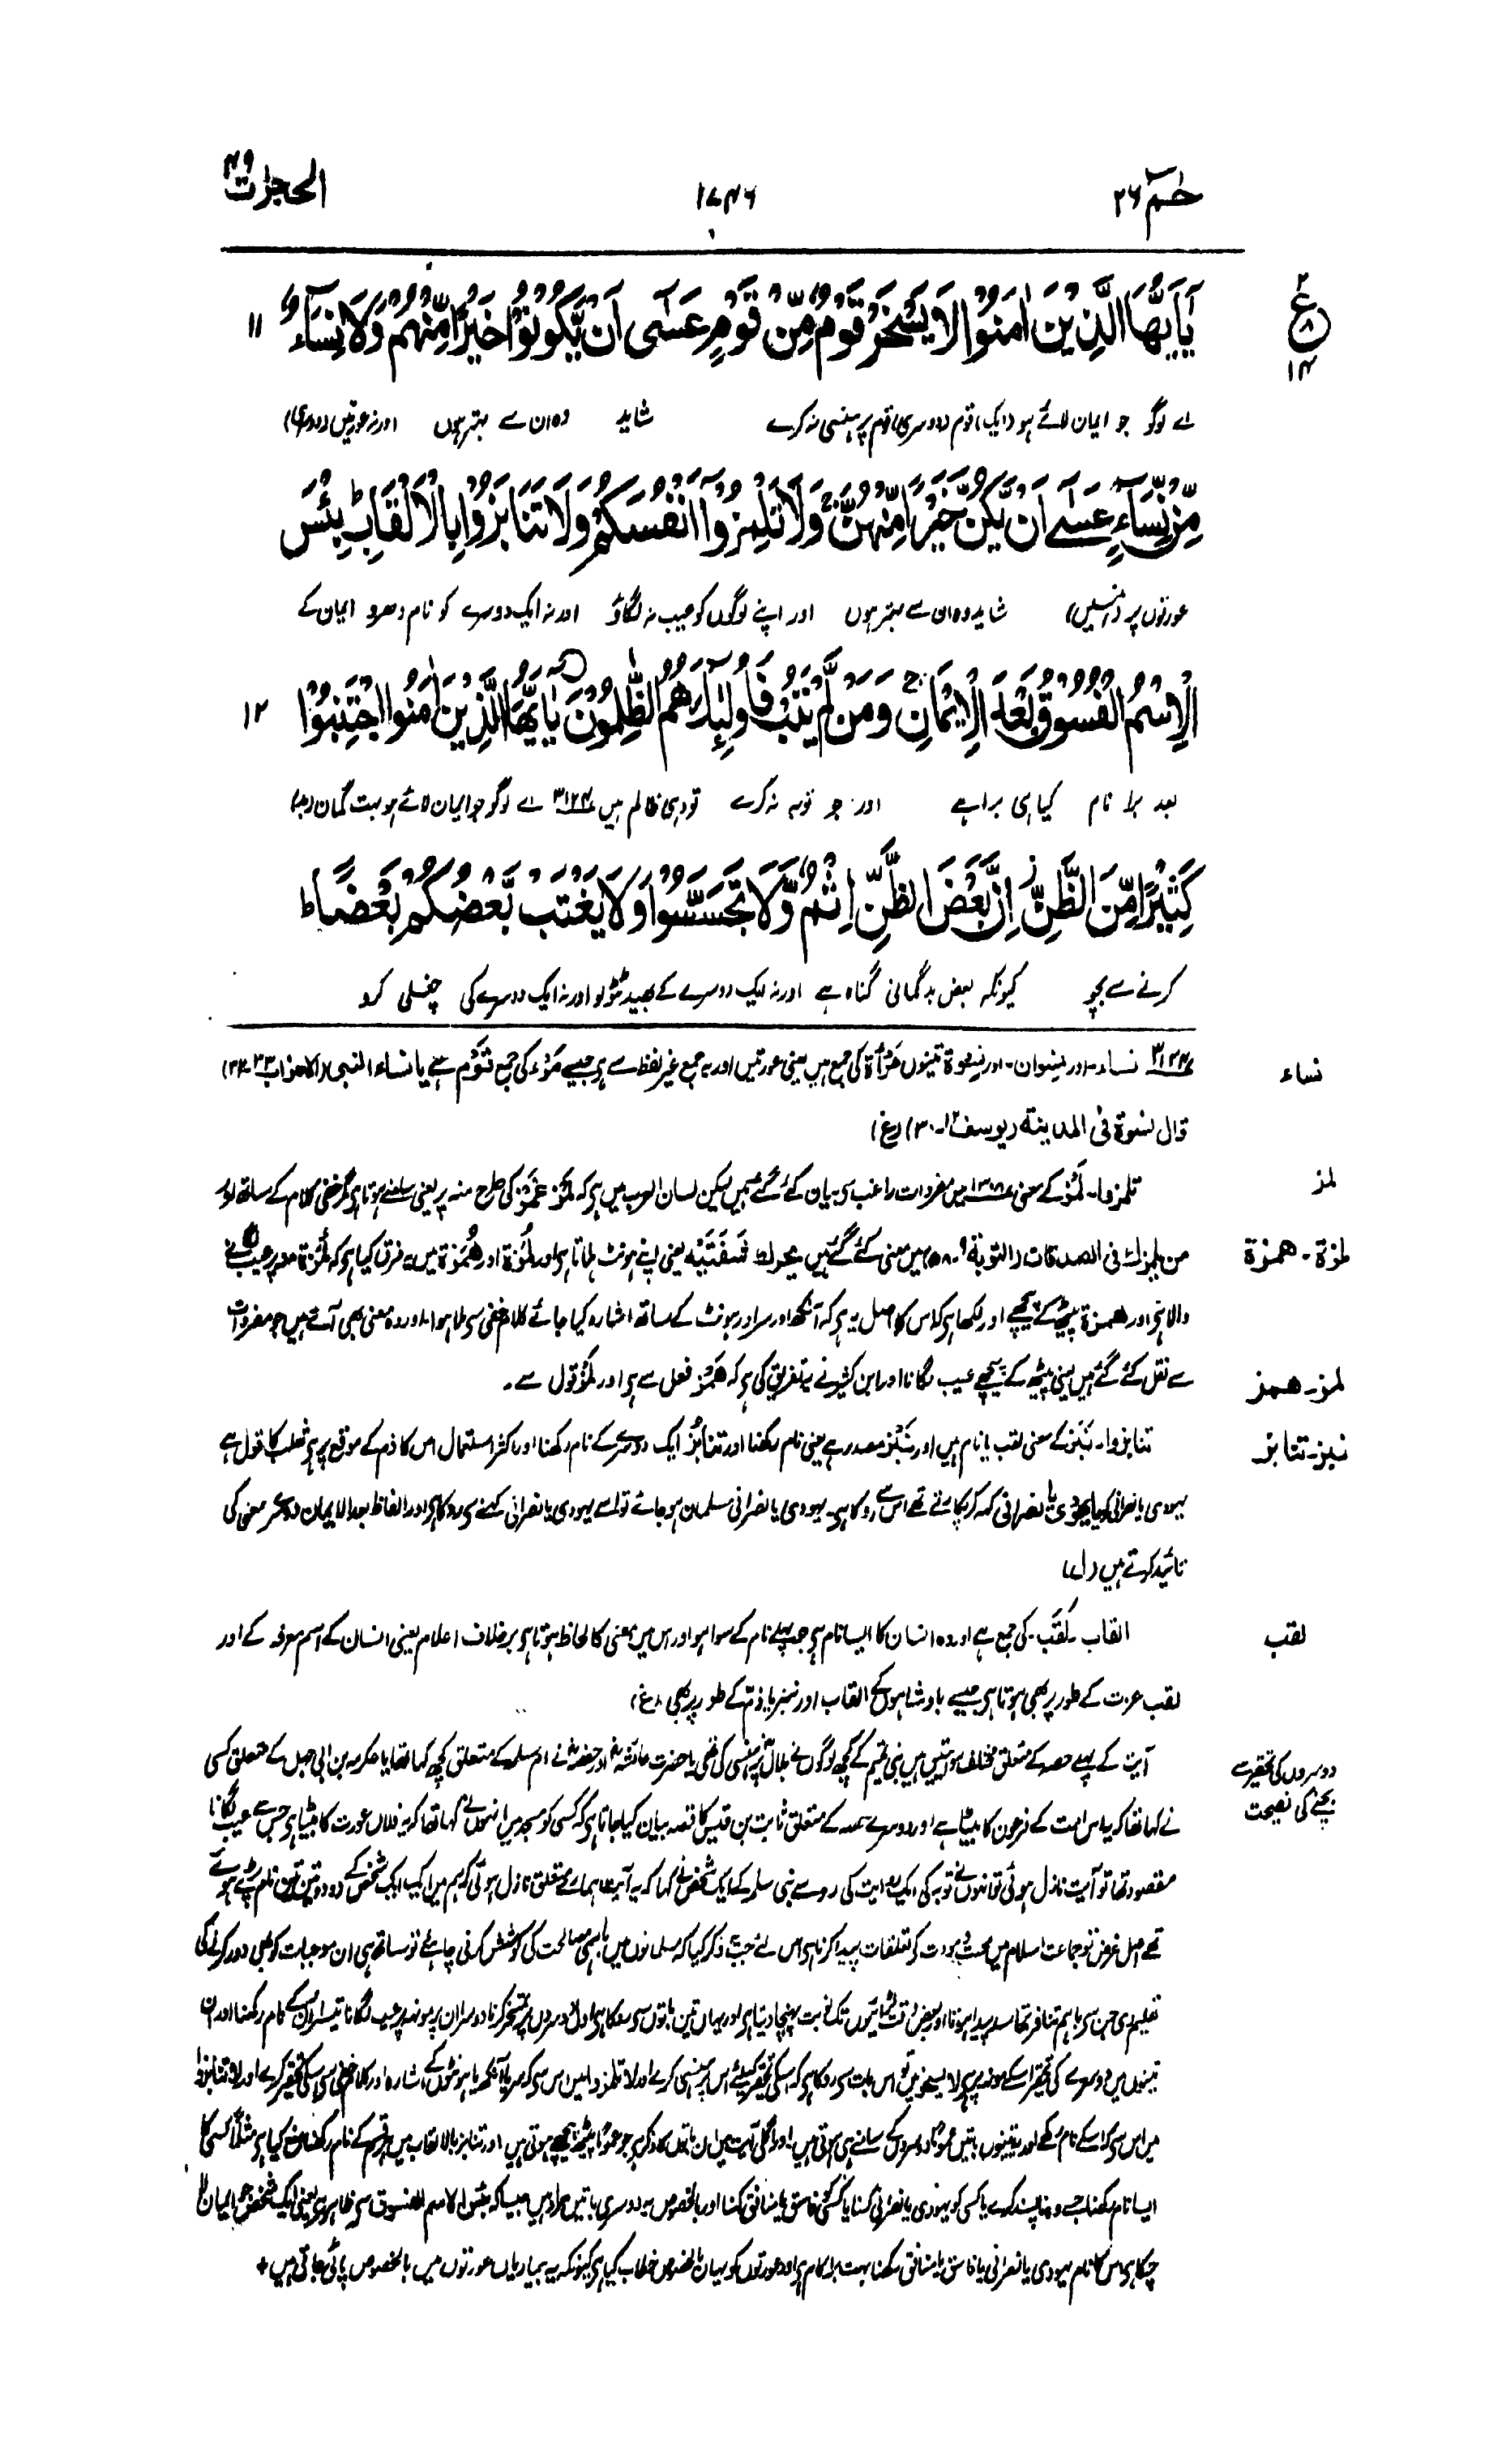 حٰمٓ ۲۶
۱۷۴۶
الحجرٰت ۴۹
ع ۲ ۸ ۱۴
یٰۤاَیُّهَا الَّذِیْنَ اٰمَنُوْا لَا یَسْخَرْ قَوْمٌ مِّنْ قَوْمٍ عَسٰۤی اَنْ یَّكُوْنُوْا خَیْرًا مِّنْهُمْ وَلَا نِسَآءٌ ۱۱
اے لوگو جو ایمان لائے ہو (ایک) قوم (دوسری) قوم پر ہنسی نہ کرے شاید وہ ان سے بہتر ہوں اور نہ عورتیں (دوسری)
مِّنْ نِّسَآءٍ عَسٰۤی اَنْ یَّكُنَّ خَیْرًا مِّنْهُنَّ ۚ وَلَا تَلْمِزُوْۤا اَنْفُسَكُمْ وَلَا تَنَابَزُوْا بِالْاَلْقَابِ ؕ بِئْسَ
عورتوں پر (ہنسیں) شاید وہ ان سے بہتر ہوں اور اپنے لوگوں کو عیب نہ لگاؤ اور نہ ایک دوسرے کو نام دھرو ایمان کے
الِاسْمُ الْفُسُوْقُ بَعْدَ الْاِیْمَانِ ۚ وَمَنْ لَّمْ یَتُبْ فَاُولٰٓئِكَ هُمُ الظّٰلِمُوْنَ یٰۤاَیُّهَا الَّذِیْنَ اٰمَنُوا اجْتَنِبُوْا ۱۲
بعد برا نام کیا ہی برا ہے اور جو توبہ نہ کرے تو وہی ظالم ہیں ۳۱۲۴ اے لوگو جو ایمان لائے ہو بہت گمان (بد)
كَثِیْرًا مِّنَ الظَّنِّ ؗ اِنَّ بَعْضَ الظَّنِّ اِثْمٌ وَّلَا تَجَسَّسُوْا وَلَا یَغْتَبْ بَّعْضُكُمْ بَعْضًا ؕ
کرنے سے بچو کیونکہ بعض بدگمانی گناہ ہے اور نہ ایک دوسرے کے بھید ٹٹولو اور نہ ایک دوسرے کی چغلی کرو
نساء
۳۱۲۴ نساء۔ اور نِسْوان۔ اور نِسوة تینوں مَرْأة کی جمع ہیں یعنی عورتیں اور یہ جمع غیر لفظ سے ہے جیسے مَرْء کی جمع قَوْم ہے یا نساء النبی (الاحزاب ۳۳۔۳۲)
قال نسوة فی المدینة (یوسف ۱۲۔۳۰) (غ)
لمز
تلمزوا۔ لَمْز کے معنی میں مفردات راغب سے بیان کئے گئے ہیں لیکن لسان العرب میں ہے کہ لَمْز غَمْز کی طرح منہ پر یعنی سامنے ہوتا ہے مگر خفی کلام کے ساتھ اور
لمزة۔ همزة
من یلمزك فی الصدقات (التوبة ۹۔۵۸) میں معنی کئے گئے ہیں یحرك شَفَتَیْه یعنی اپنے ہونٹ ہلاتا ہے اور لُمَزة اور هُمَزة میں یہ فرق کیا ہے کہ لُمَزة منہ پر عیب لگانے
والا ہے اور همزة پیٹھ کے پیچھے اور لکھا ہے کہ اس کا اصل یہ ہے کہ آنکھ اور سر اور ہونٹ کے ساتھ اشارہ کیا جائے کلام خفی سے ملا ہوا۔ اور وہ معنی بھی آتے ہیں جو مفردات
لمز۔ همز
سے نقل کئے گئے ہیں یعنی پیٹھ کے پیچھے عیب لگانا اور ابن کثیر نے یہ تفریق کی ہے کہ هَمْز فعل سے ہے اور لَمْز قول سے۔
نبز۔ تنابز
تنابزوا۔ نَبَز کے معنی لقب یا نام ہیں اور نَبْز مصدر ہے یعنی نام رکھنا اور تنابُز ایک دوسرے کے نام رکھنا اور اکثر استعمال اس کا ذم کے موقع پر ہے ثعلب کا قول ہے
یہودی یا نصرانی کو یا یہودی یا نصرانی کہہ کر پکارتے تھے اس سے روکا ہے۔ یہودی یا نصرانی مسلمان ہو جائے تو اسے یہودی یا نصرانی کہنے سے روکا ہے اور الفاظ بعد الایمان دوسرے معنی کی
تائید کرتے ہیں (ل)
لقب
القاب۔ لَقَب۔ کی جمع ہے اور وہ انسان کا ایسا نام ہے جو پہلے نام کے سوا ہو اور اس میں معنی کا لحاظ ہوتا ہے برخلاف اعلام یعنی انسان کے اسم معرفہ کے اور
لقب عزت کے طور پر بھی ہوتا ہے جیسے بادشاہوں کے القاب اور نبز یا ذم کے طور پر بھی (غ)
دوسروں کی تحقیر سے
بچنے کی نصیحت
آیت کے پہلے حصہ کے متعلق مختلف روایتیں ہیں بنی تمیم کے کچھ لوگوں نے بلالؓ پر ہنسی کی تھی یا حضرت عائشہؓ اور حفصہؓ نے ام سلمہ کے متعلق کچھ کہا تھا یا عکرمہ بن ابی جہل کے متعلق کسی
نے کہا تھا کہ یہ اس امت کے فرعون کا بیٹا ہے اور دوسرے حصہ کے متعلق ثابت بن قیس کا قصہ بیان کیا جاتا ہے کہ کسی کو مسجد میں انہوں نے کہا تھا کہ یہ فلاں عورت کا بیٹا ہے جس سے عیب لگانا
مقصود تھا تو آیت نازل ہوئی تو انہوں نے توبہ کی ایک روایت کی رو سے بنی سلمہ کے ایک شخص نے کہا کہ یہ آیت ہمارے متعلق نازل ہوئی کہ ہم میں ایک ایک شخص کے دو دو تین تین نام پڑے ہوئے
تھے اصل غرض تو جماعت اسلام میں محبت و مودت کے تعلقات پیدا کرنا ہے اس لئے جب یہ ذکر کیا کہ مسلمانوں میں باہمی مصالحت کی کوشش کرنی چاہئے تو ساتھ ہی ان موجبات کو بھی دور کرنے کی
تعلیم دی جن سے باہم تنافر تحاسد پیدا ہوتا اور بعض وقت لڑائیوں تک نوبت پہنچا دیتا ہے اور یہاں تین باتوں سے روکا ہے اول دوسروں پر تمسخر کرنا دوسرا ان پر منہ پر عیب لگانا تیسرا ان کے نام رکھنا اور ان
تینوں میں دوسرے کی تحقیر اس کے منہ پر ہے لا یسخر میں تو اس بات سے روکا ہے کہ اسکی تحقیر کیلئے اس پر ہنسی کرے اور لا تلمزوا میں اس سے کہ سر یا آنکھ یا ہونٹوں کے اشارہ اور کلام خفی سے اسکی تحقیر کرے اور لا تنابزوا
میں اس سے کہ اسکے نام رکھے اور یہ تینوں باتیں عموماً دوسروں کے سامنے ہی ہوتی ہیں اور اگلی آیت میں ان باتوں کا ذکر ہے جو عموماً پیٹھ پیچھے ہوتی ہیں اور تنابز بالالقاب میں ہر قسم کے نام رکھنا منع کیا ہے مثلاً کسی کا
ایسا نام رکھنا جسے وہ ناپسند کرے یا کسی کو یہودی یا نصرانی کہنا یا کسی کو فاسق یا منافق کہنا اور بالخصوص یہ دوسری باتیں مراد ہیں جیسا کہ بئس الاسم الفسوق سے ظاہر ہے یعنی ایک شخص جو ایمان لا
چکا ہے اس کا نام یہودی یا نصرانی یا فاسق یا منافق رکھنا بہت برا کام ہے اور عورتوں کو یہاں بالخصوص خطاب کیا ہے کیونکہ یہ بیماریاں عورتوں میں بالخصوص پائی جاتی ہیں +